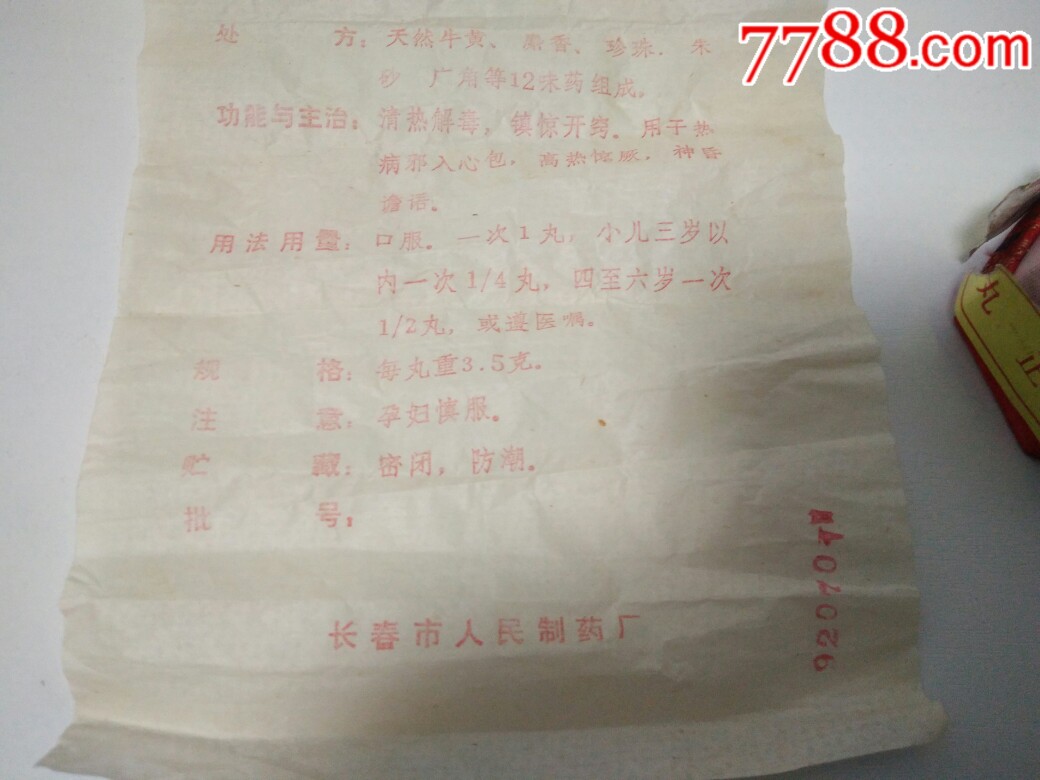 7788.com
处 方：天然牛黄、麝香、珍珠．朱
砂 广角等12味药组成。
功能与主治：清热解毒，镇惊开窍。用于热
病邪入心包，高热惊厥，神昏
谵语。
用法用量：口服。一次1丸，小儿三岁以
内一次1/4丸，四至六岁一次
1/2丸，或遵医嘱。
规 格：每丸重3.5克。
注 意：孕妇慎服。
贮 藏：密闭，防潮。
批 号：
长春市人民制药厂
丸
正